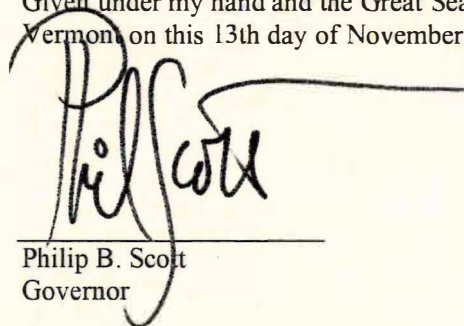 Given under my hand and the Great Sea
Vermont on this 13th day of November
Phil Scott
Philip B. Scott
Governor